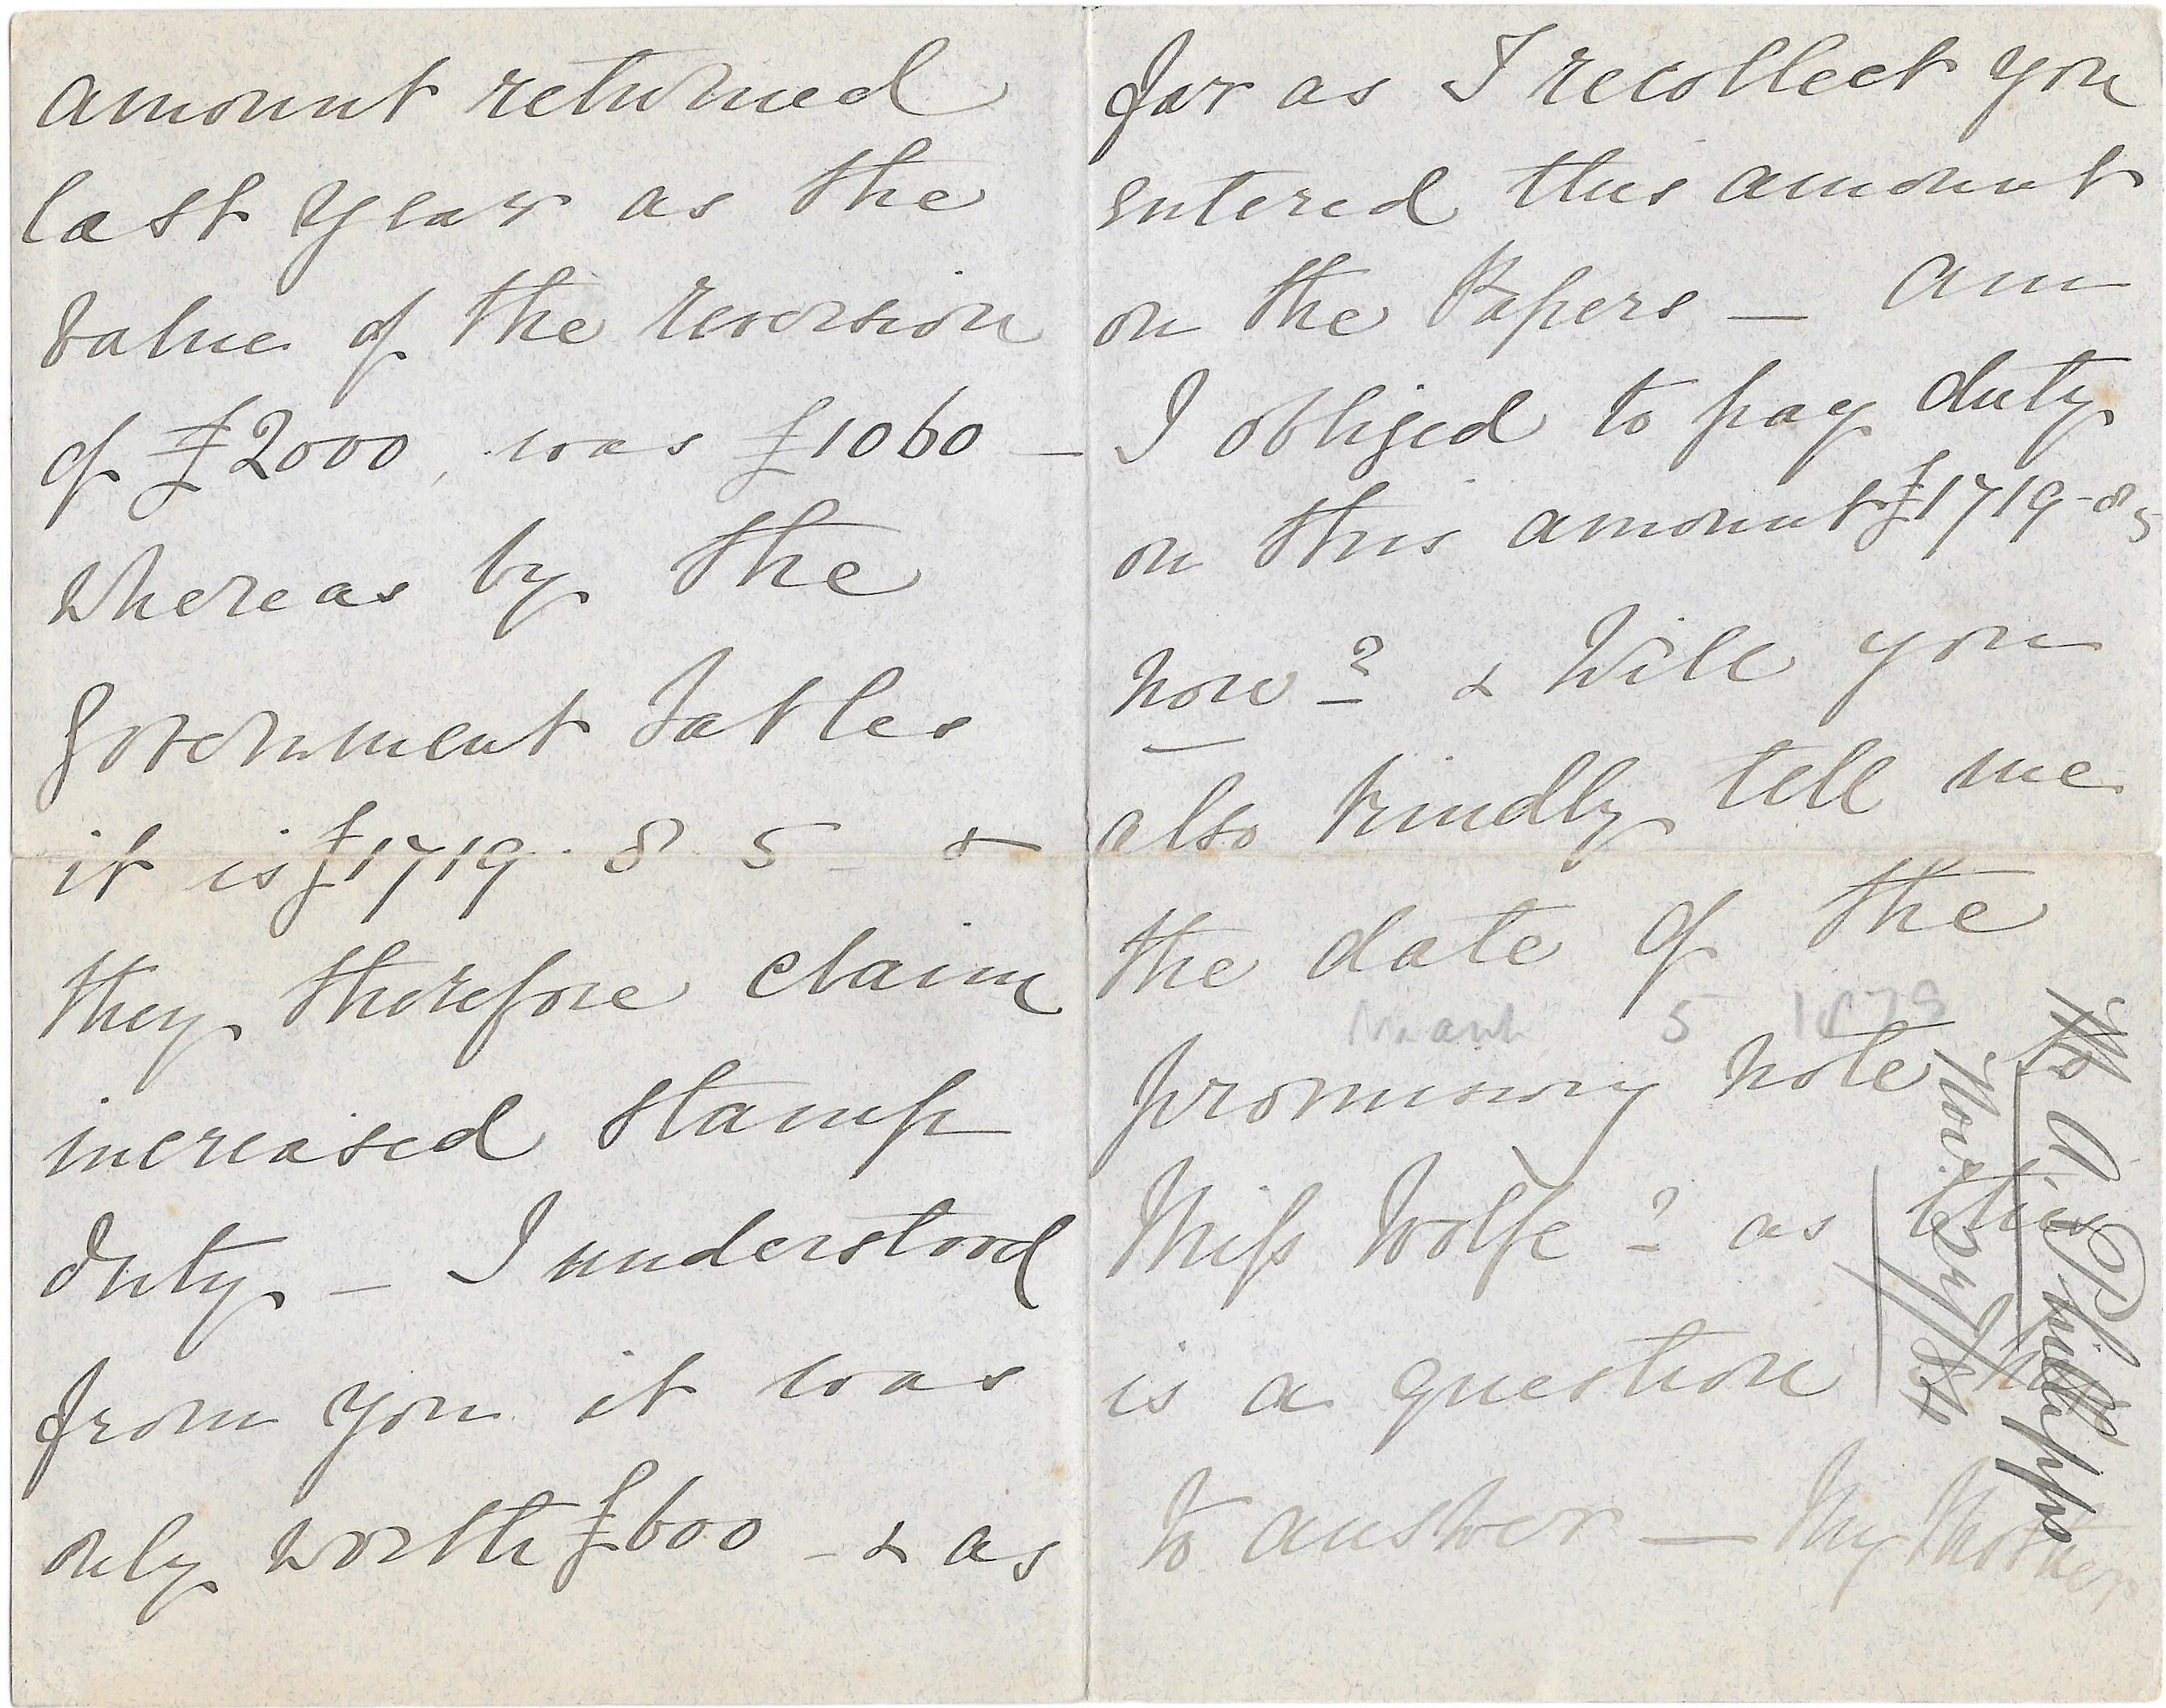 amount returned
last year as the
value of the reversion
of £2000, was £1060 —
Whereas by the
Government Tables
it is £1719. 8 5 &
they therefore claim
increased stamp
duty — I understood
from you it was
only worth £600 — & as
far as I recollect you
entered this amount
on the Papers — am
I obliged to pay duty
on this amount £1719-8 5
now? & Will you
also kindly tell me
the date of the
March 5 1879
promisory note to
Miss Wolfe? as this
is a question
to answer — My Mother
A Phillipps
Nov.